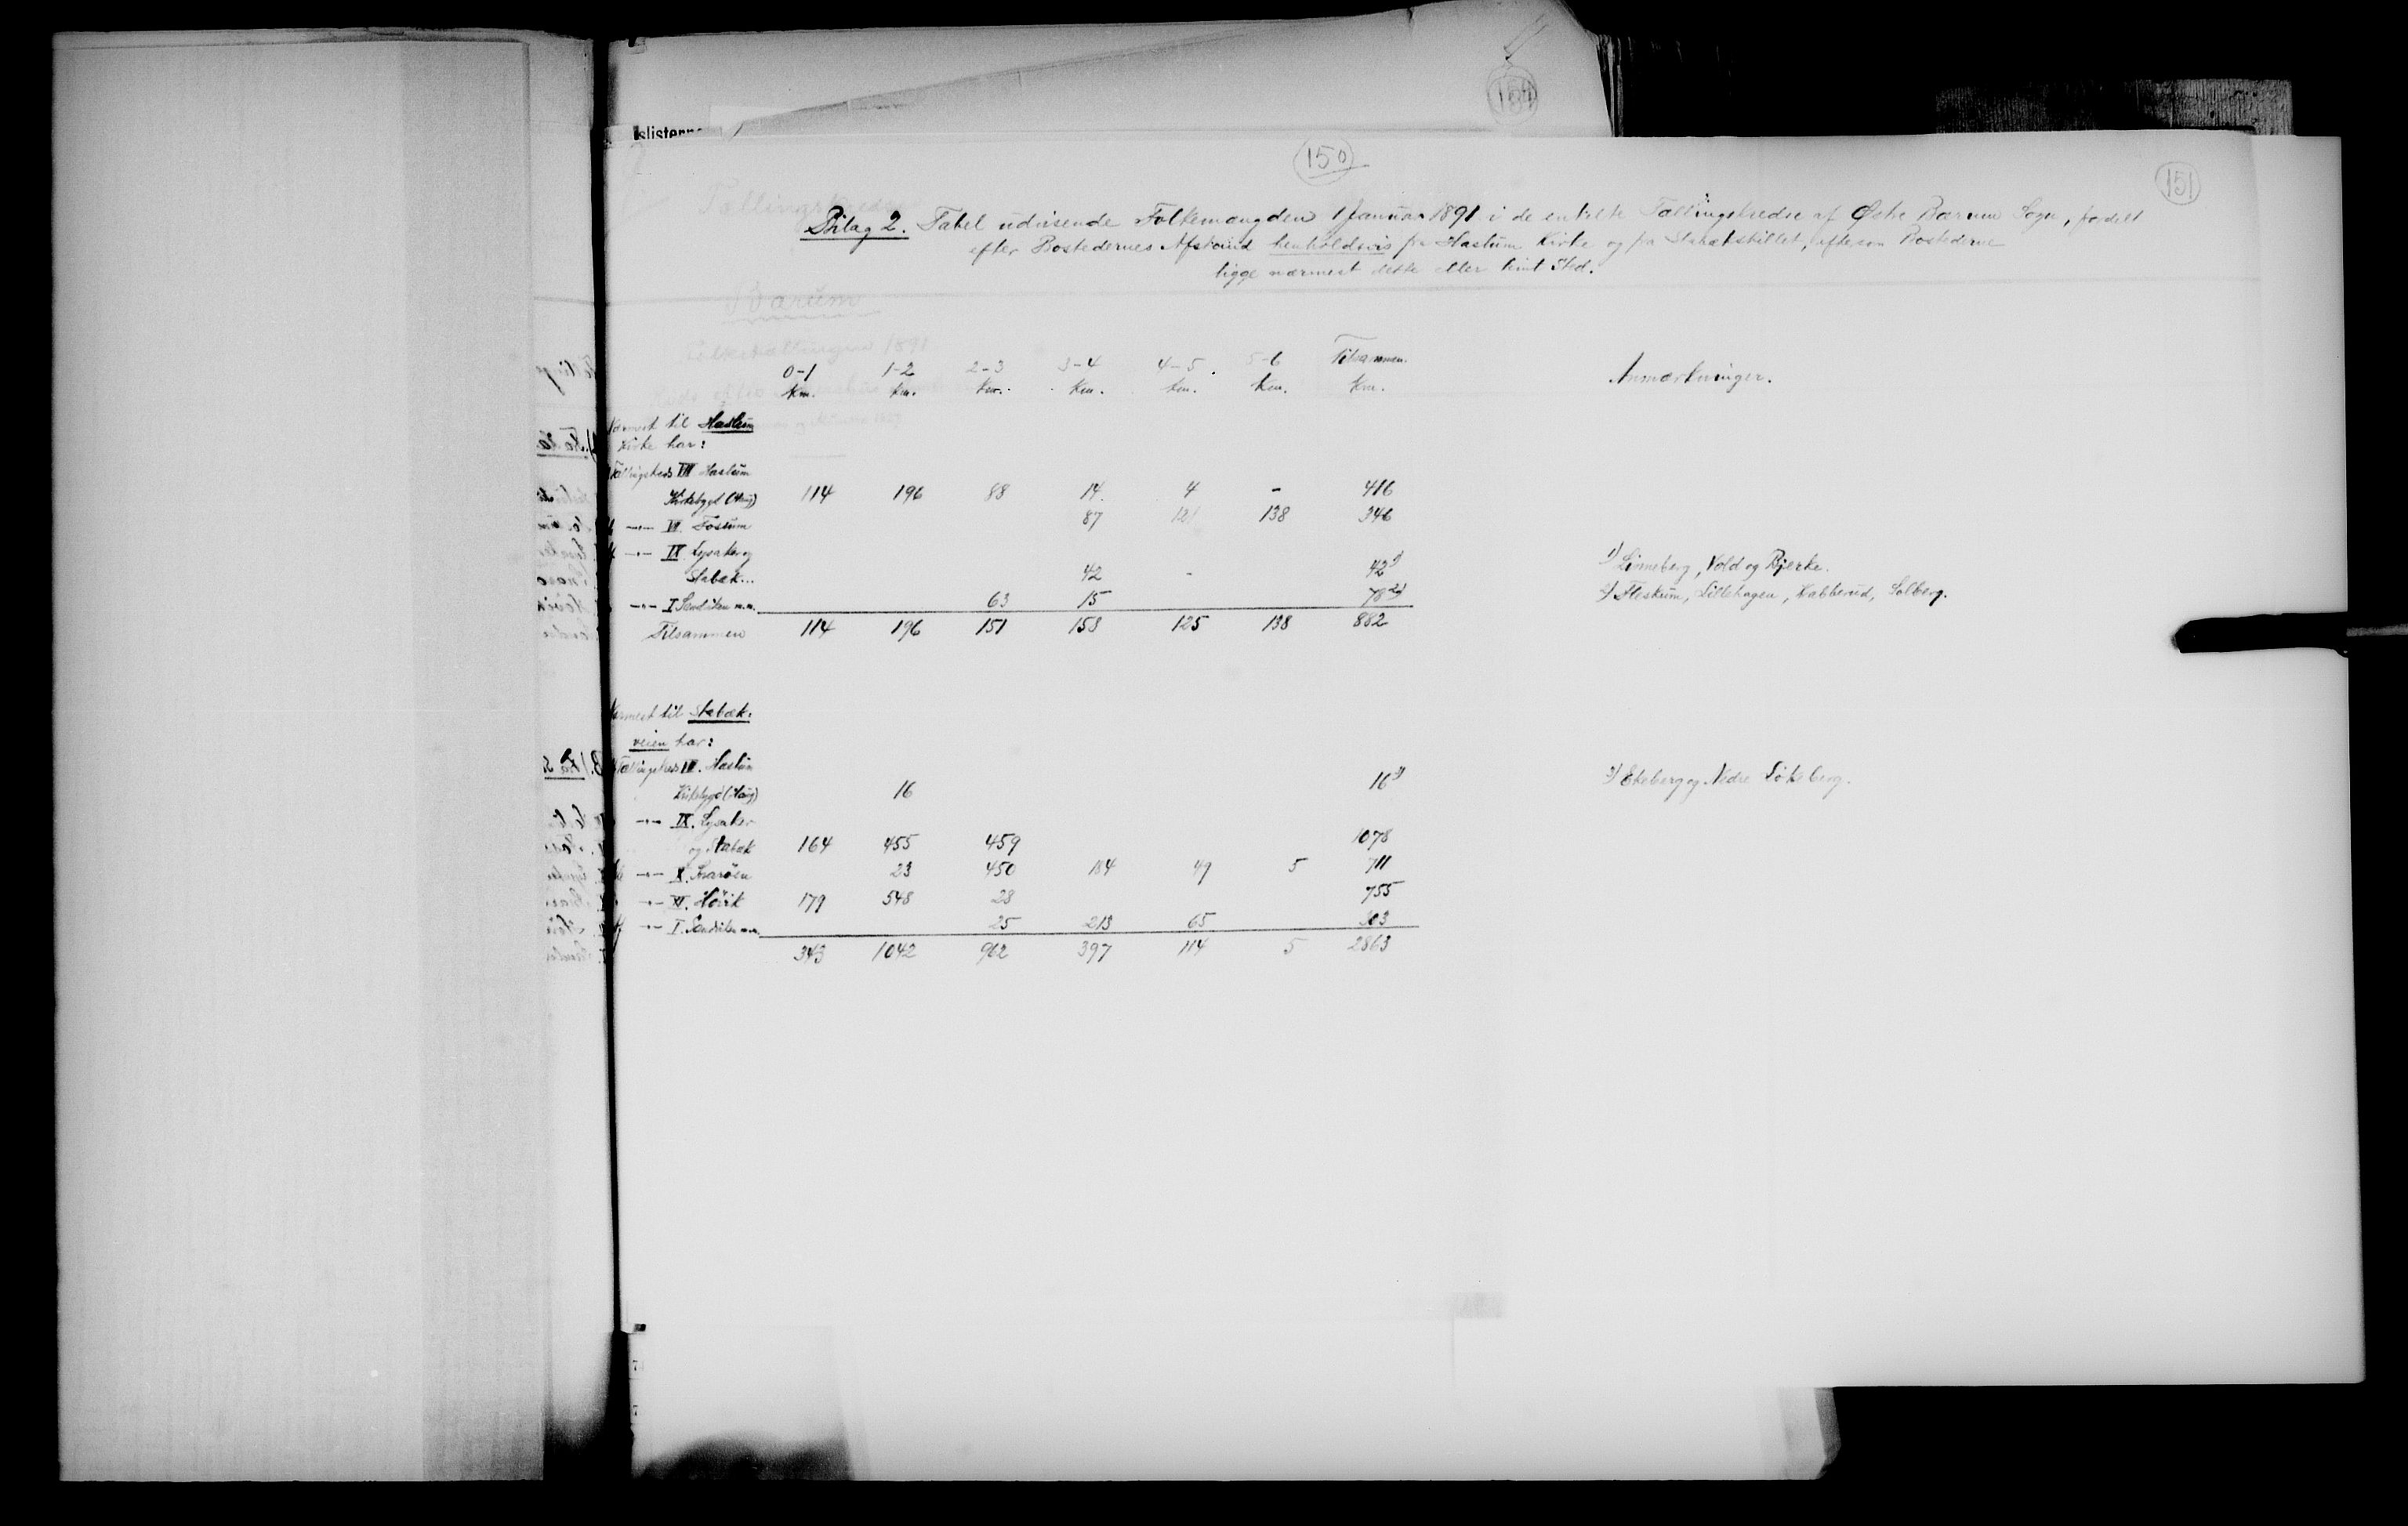 slisterne
150
151
Bilag 2. Tabel udvisende Folkemængden 1 Januar 1891 i de enkelte Tællingskredse af Østre Bærum Sogn, fordelt
efter Bostedernes Afstand henholdsvis fra Haslum Kirke og fra Stabækskillet, eftersom Bostederne
ligge nærmest dette eller hint Sted.
Bærum
Folketællingen 1891
0-1 1-2 2-3 3-4 4-5. 5-6 Tilsammen. Anmærkninger.
Km. Km. Km. Km. Km. Km. Km.
Nærmest til Haslum
Kirke har:
Tællingskreds VII Haslum
Kirkebygd (Haug) 114 196 88 14 4 - 416
—"— VI. Fossum 87 121 138 346
—"— IX Lysaker og
Stabæk... 42 - 42 1) 1) Linneberg, Vold og Bjerke.
—"— I Sandviken m.m. 63 15 78 2) 2) Fleskum, Lillehagen, Kabberud, Solberg.
Tilsammen 114 196 151 158 125 138 882
Nærmest til Stabæk-
veien har:
Tællingskreds VII. Haslum
Kirkebygd (Haug) 16 16 3) 3) Ekeberg og Nedre Løkeberg.
—"— IX. Lysaker
og Stabæk 164 455 459 1078
—"— X. Snarøen 23 450 184 49 5 711
—"— XI. Høvik 179 548 28 755
—"— I. Sandviken m.m. 25 213 65 303
343 1042 962 397 114 5 2863